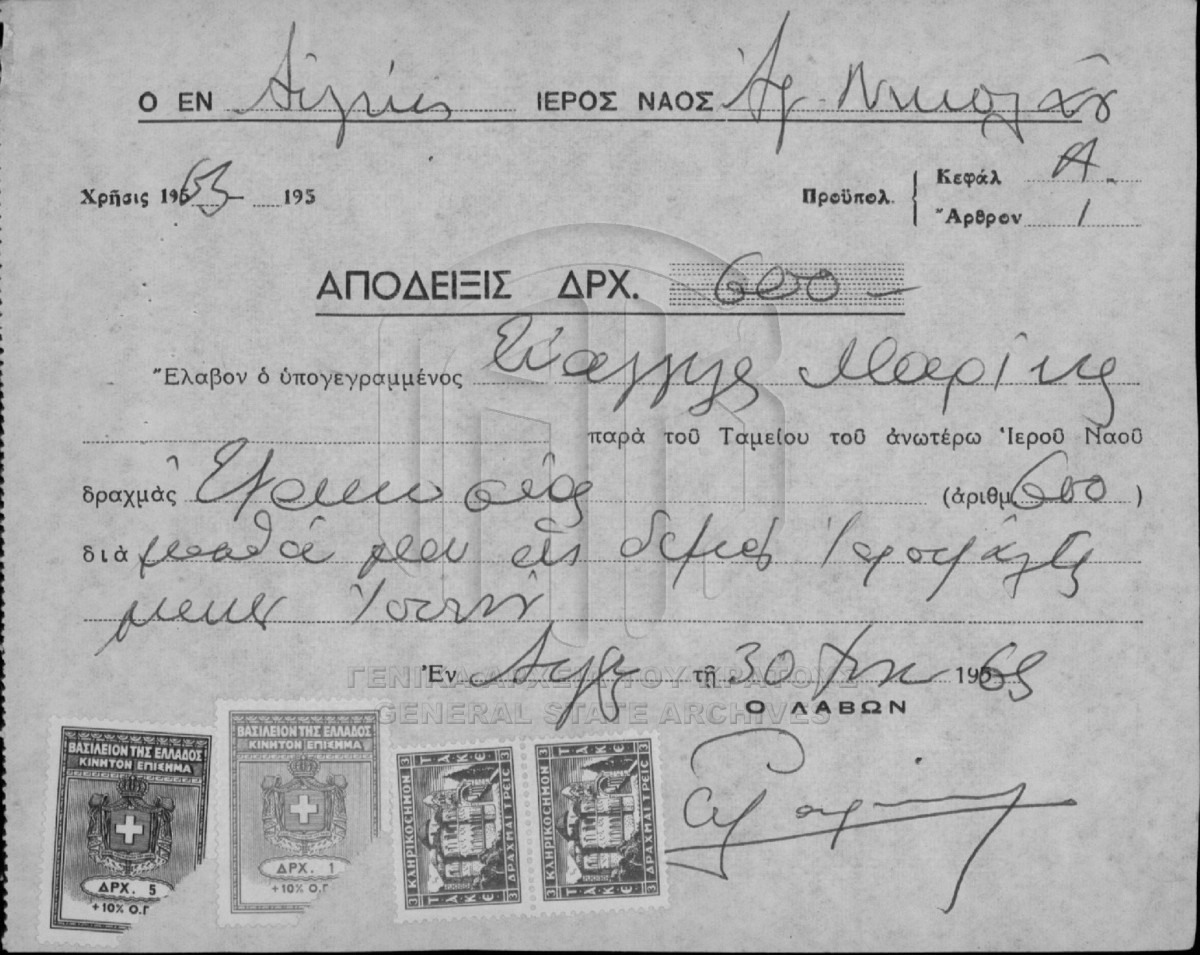 Ο ΕΝ Αἰγίνῃ ΙΕΡΟΣ ΝΑΟΣ Ἁγ. Νικολάου
Χρῆσις 1963 195
Προϋπολ. Κεφάλ Α
Ἄρθρον 1
ΑΠΟΔΕΙΞΙΣ ΔΡΧ. 600
Ἔλαβον ὁ ὑπογεγραμμένος Εὐάγγελος Μαρίνης
παρὰ τοῦ Ταμείου τοῦ ἀνωτέρω Ἱεροῦ Ναοῦ
δραχμὰς Ἑξακοσίας (ἀριθμ 600 )
διὰ μισθό μου ὡς δεξιός Ἱεροψάλτης
Ἐν τῇ 30 1963
Ο ΛΑΒΩΝ
ΓΕΝΙΚΑ ΑΡΧΕΙΑ ΤΟΥ ΚΡΑΤΟΥΣ
GENERAL STATE ARCHIVES
ΒΑΣΙΛΕΙΟΝ ΤΗΣ ΕΛΛΑΔΟΣ
ΚΙΝΗΤΟΝ ΕΠΙΣΗΜΑ
ΔΡΧ. 5
+10% Ο.Γ
ΒΑΣΙΛΕΙΟΝ ΤΗΣ ΕΛΛΑΔΟΣ
ΚΙΝΗΤΟΝ ΕΠΙΣΗΜΑ
ΔΡΧ. 1
+10% Ο.Γ
3 ΤΑΚΕ 3
3 ΚΛΗΡΙΚΟΣΗΜΟΝ 3
ΔΡΑΧΜΑΙ ΤΡΕΙΣ
ΤΑΚΕ
3 ΤΑΚΕ 3
3 ΚΛΗΡΙΚΟΣΗΜΟΝ 3
ΔΡΑΧΜΑΙ ΤΡΕΙΣ
ΤΑΚΕ